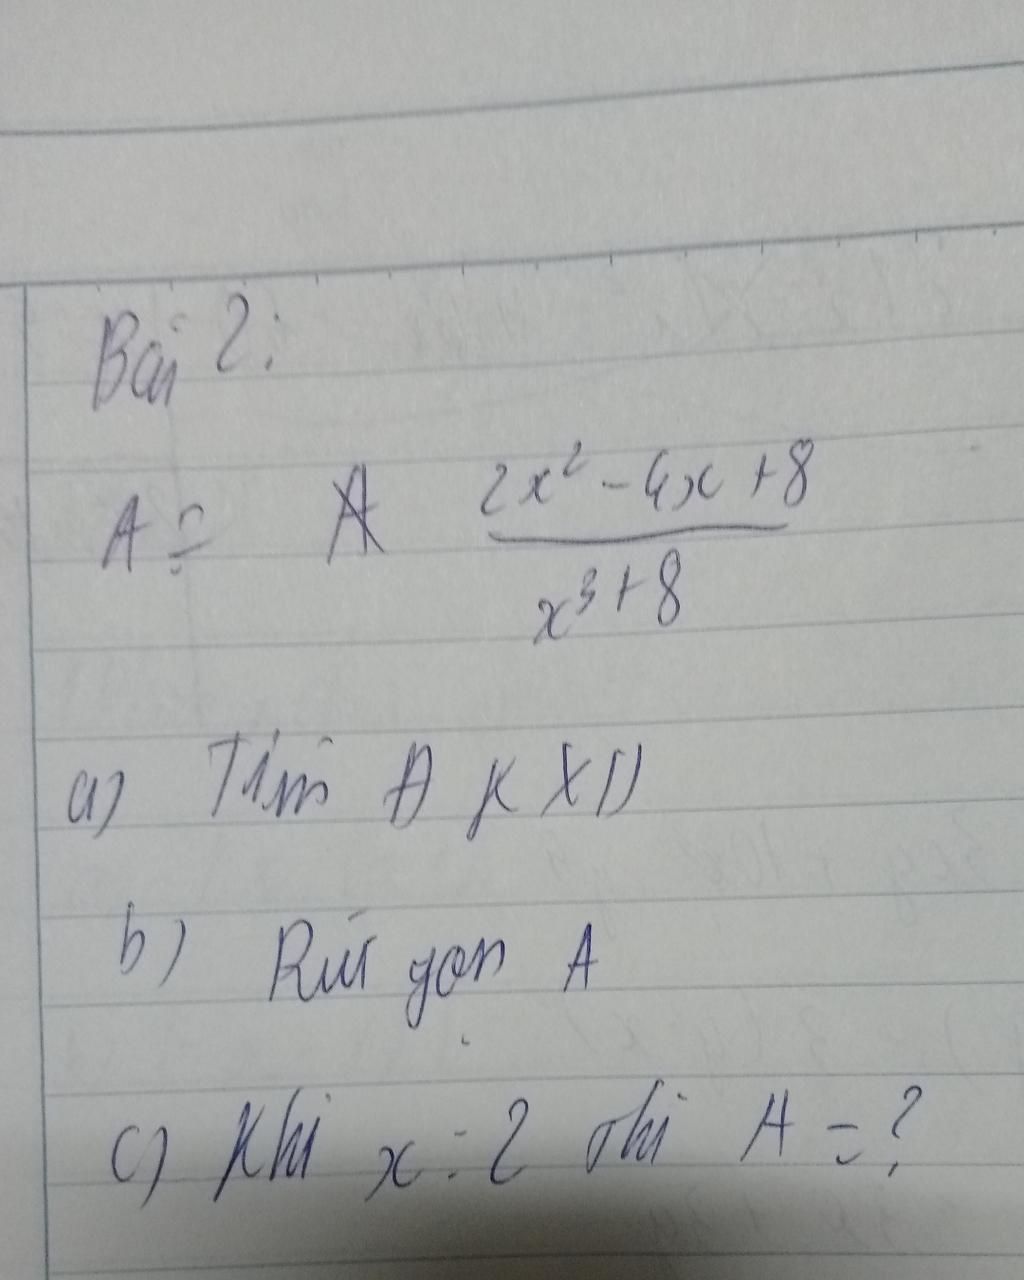 Bài 2:
A = 2x² - 4x + 8 / x³ + 8
a) Tìm ĐKXĐ
b) Rút gọn A
c) Khi x = 2 thì A = ?